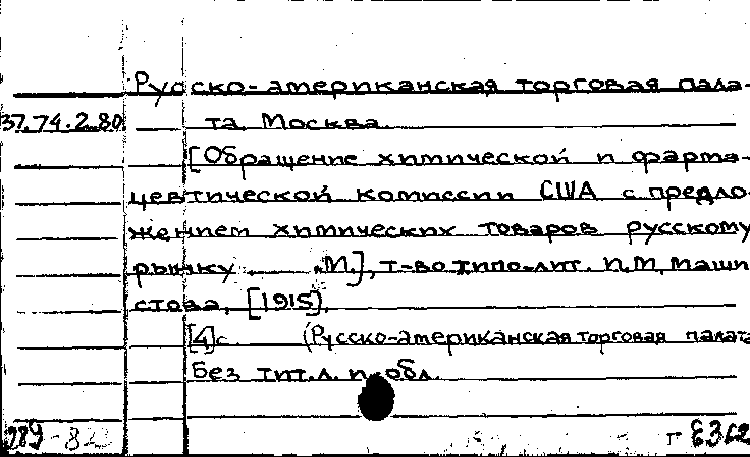 Русско-американская торговая пала-
37.74.2.80 та. Москва.
[Обращение химической и фарма-
цевтической комиссии США с предло-
жением химических товаров русскому
рынку М.], т-во типо-лит. И.М. Маши
стова, [1915].
[4]с. (Русско-американская торговая палата
Без тит.л. и обл.